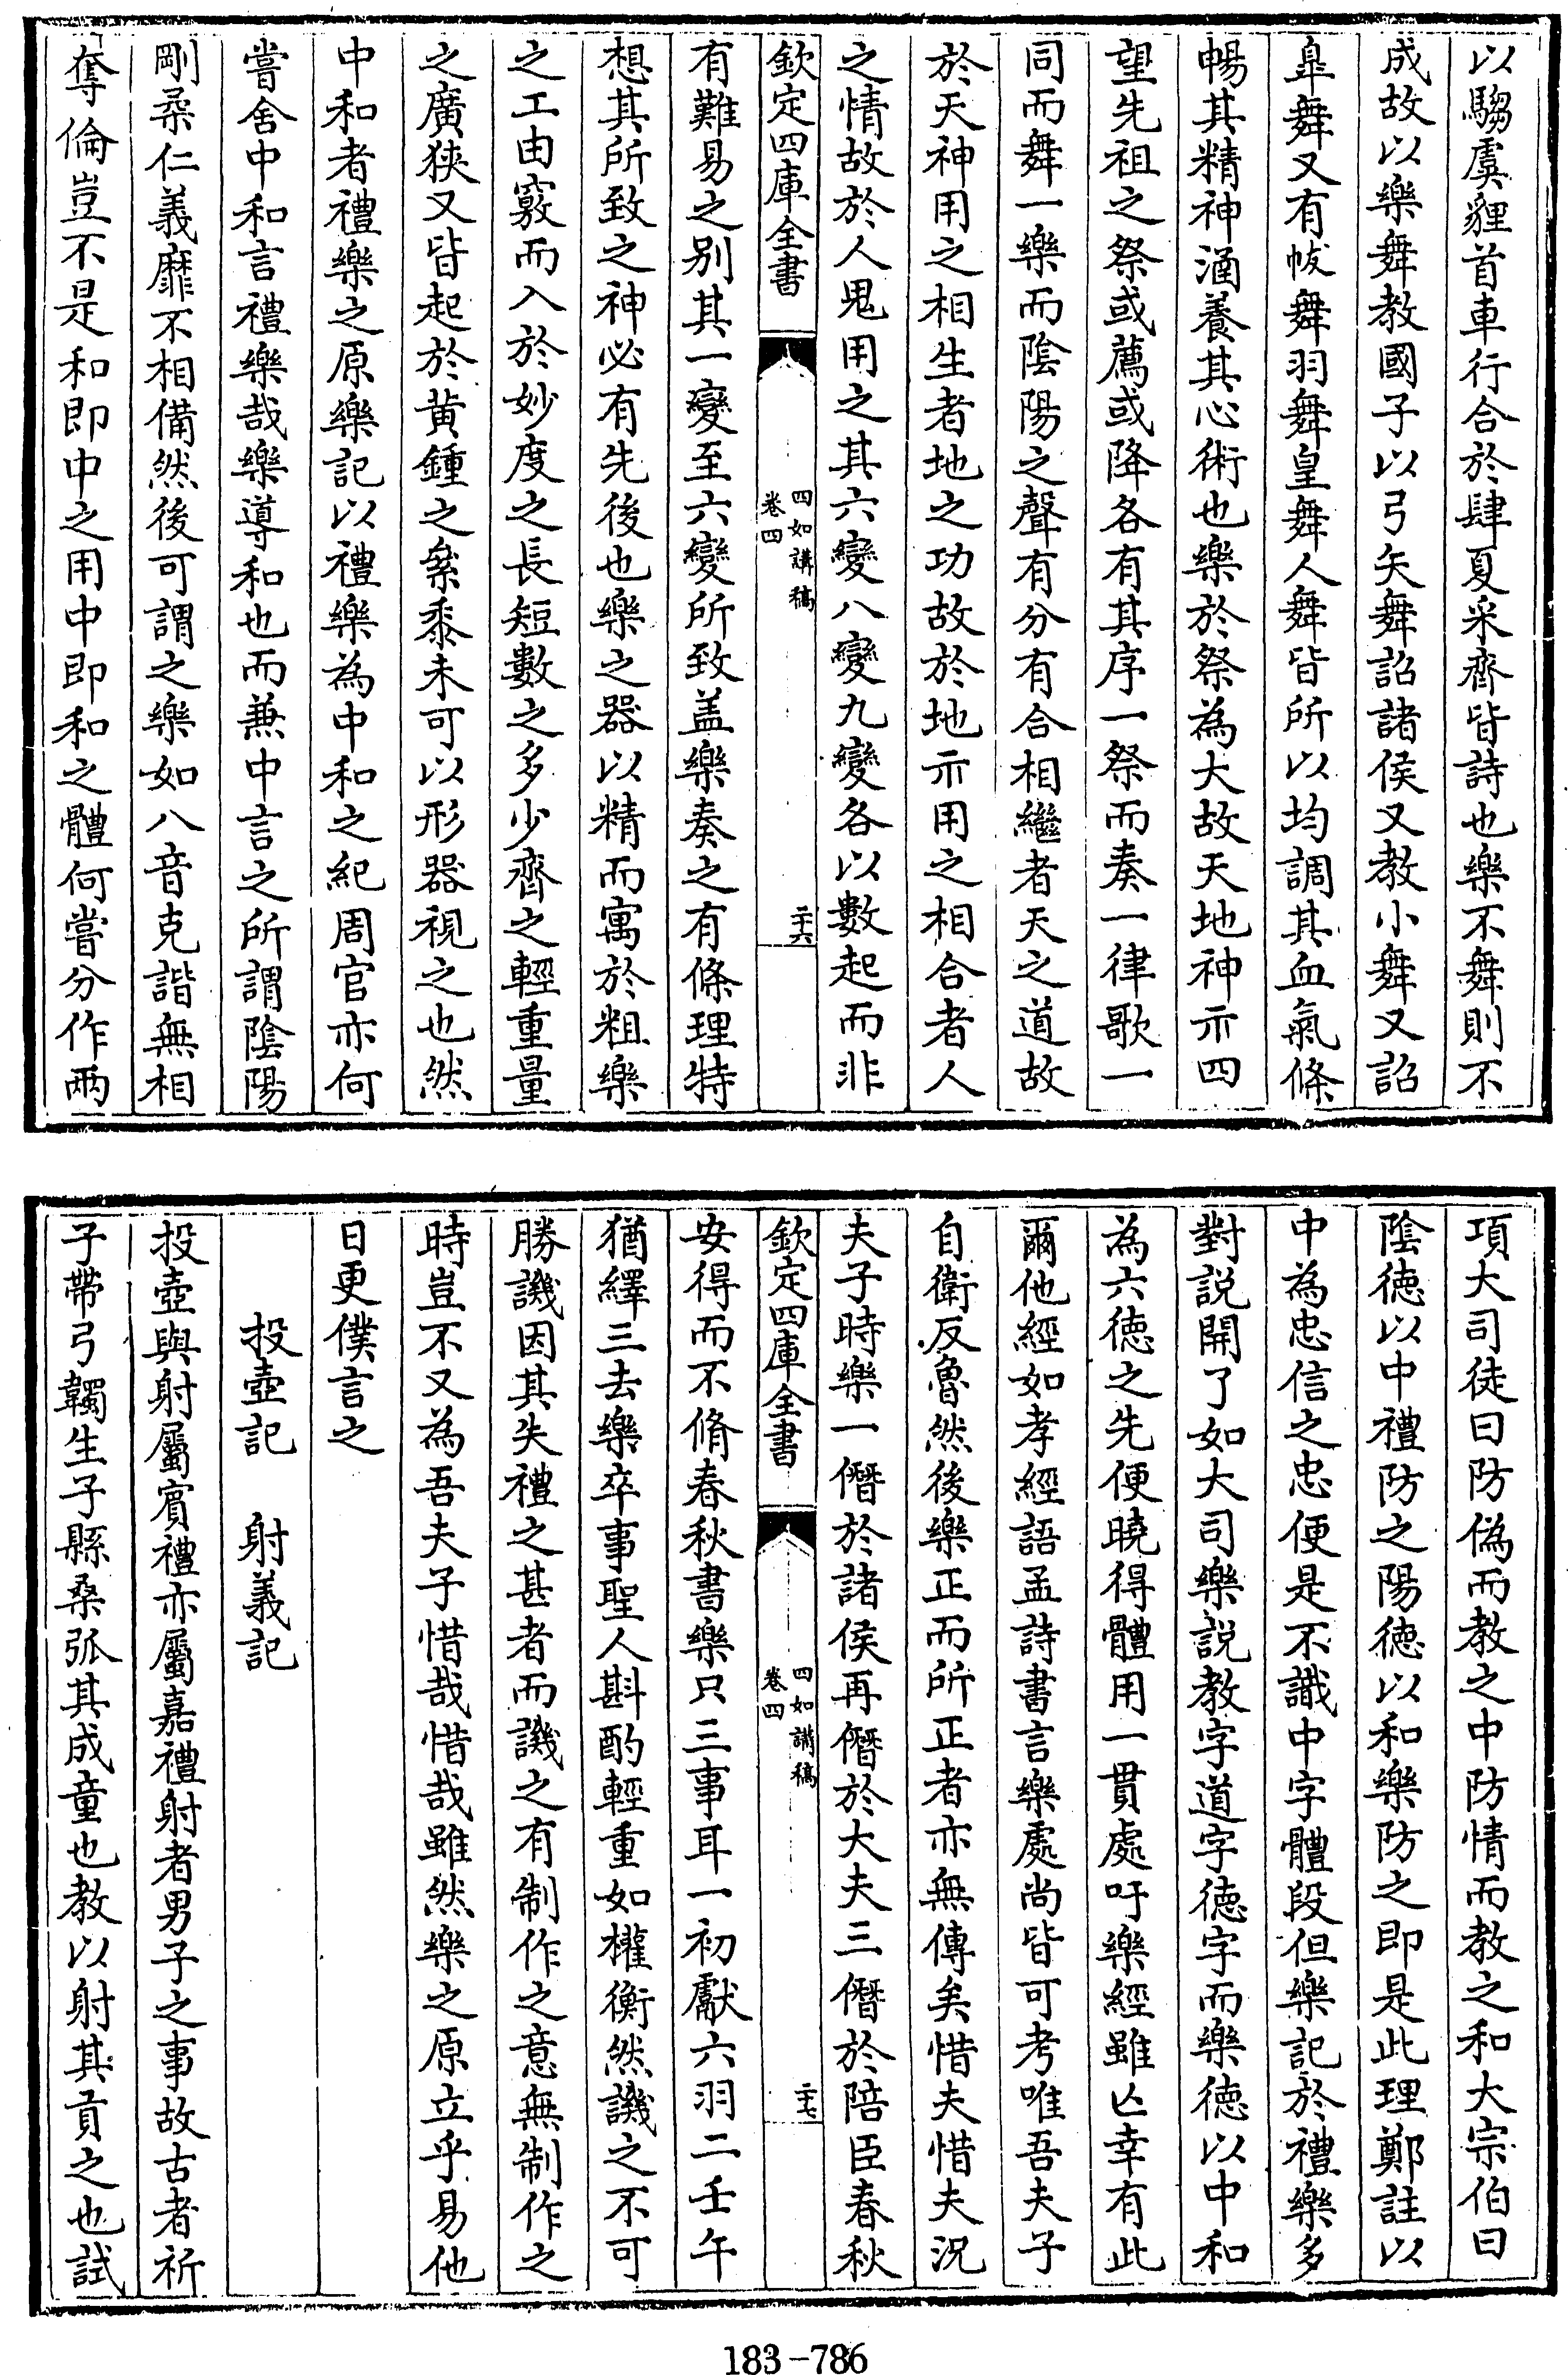 以騶虞貍首車行合於肆夏采齊皆詩也樂不舞則不
成故以樂舞教國子以弓矢舞詔諸侯又教小舞又詔
皐舞又有帗舞羽舞皇舞人舞皆所以均調其血氣條
暢其精神涵養其心術也樂於祭為大故天地神示四
望先祖之祭或薦或降各有其序一祭而奏一律歌一
同而舞一樂而陰陽之聲有分有合相繼者天之道故
於天神用之相生者地之功故於地示用之相合者人
之情故於人鬼用之其六變八變九變各以數起而非
欽定四庫全書
四如講稿
卷四
二十六
有難易之别其一變至六變所致盖樂奏之有條理特
想其所致之神必有先後也樂之器以精而寓於粗樂
之工由竅而入於妙度之長短數之多少齊之輕重量
之廣狹又皆起於黄鍾之絫黍未可以形器視之也然
中和者禮樂之原樂記以禮樂為中和之紀周官亦何
嘗舍中和言禮樂哉樂導和也而兼中言之所謂陰陽
剛柔仁義靡不相備然後可謂之樂如八音克諧無相
奪倫豈不是和即中之用中即和之體何嘗分作兩
項大司徒曰防偽而教之中防情而教之和大宗伯曰
陰徳以中禮防之陽徳以和樂防之即是此理鄭註以
中為忠信之忠便是不識中字體段但樂記於禮樂多
對説開了如大司樂説教字道字徳字而樂徳以中和
為六徳之先便曉得體用一貫處吁樂經雖亡幸有此
爾他經如孝經語孟詩書言樂處尚皆可考唯吾夫子
自衛反魯然後樂正而所正者亦無傳矣惜夫惜夫況
夫子時樂一僭於諸侯再僭於大夫三僭於陪臣春秋
欽定四庫全書
四如講稿
卷四
二十七
安得而不脩春秋書樂只三事耳一初獻六羽二壬午
猶繹三去樂卒事聖人斟酌輕重如權衡然譏之不可
勝譏因其失禮之甚者而譏之有制作之意無制作之
時豈不又為吾夫子惜哉惜哉雖然樂之原立乎易他
日更僕言之
投壺記　射義記
投壺與射屬賓禮亦屬嘉禮射者男子之事故古者祈
子帶弓韣生子縣桑弧其成童也教以射其貢之也試
183-786